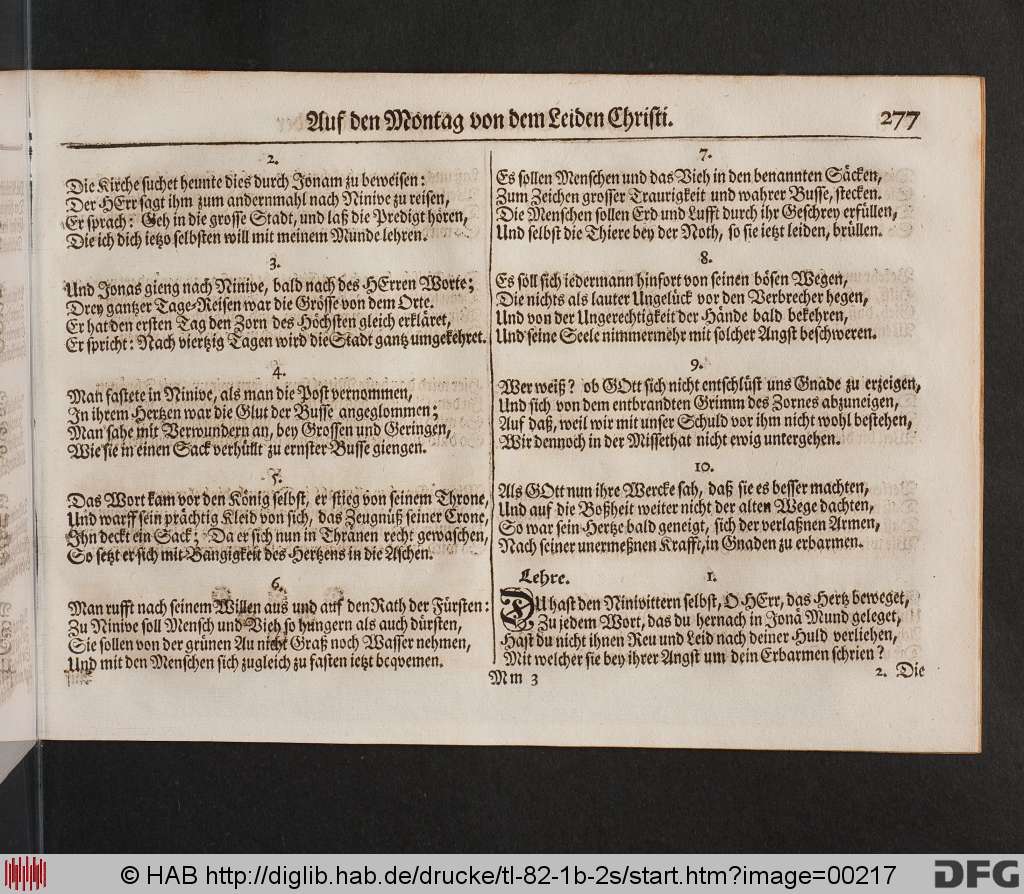 Auf den Montag von dem Leiden Christi.
277
2.
Die Kirche suchet heunte dies durch Jonam zu beweisen:
Der HErr sagt ihm zum andernmahl nach Ninive zu reisen,
Er sprach: Geh in die grosse Stadt, und laß die Predigt hören,
Die ich dich ietzo selbsten will mit meinem Munde lehren.
3.
Und Jonas gieng nach Ninive, bald nach des HErren Worte;
Drey gantzer Tage-Reisen war die Grösse von dem Orte.
Er hat den ersten Tag den Zorn des Höchsten gleich erkläret,
Er spricht: Nach viertzig Tagen wird die Stadt gantz umgekehret.
4.
Man fastete in Ninive, als man die Post vernommen,
In ihrem Hertzen war die Glut der Busse angeglommen;
Man sahe mit Verwundern an, bey Grossen und Geringen,
Wie sie in einen Sack verhüllt zu ernster Busse giengen.
5.
Das Wort kam vor den König selbst, er stieg von seinem Throne,
Und warff sein prächtig Kleid von sich, das Zeugnüß seiner Crone,
Ihn deckt ein Sack; Da er sich nun in Thränen recht gewaschen,
So setzt er sich mit Bangigkeit des Hertzens in die Aschen.
6.
Man rufft nach seinem Willen aus und auf den Rath der Fürsten:
Zu Ninive soll Mensch und Vieh so hungern als auch dürsten,
Sie sollen von der grünen Au nicht Graß noch Wasser nehmen,
Und mit den Menschen sich zugleich zu fasten ietzt beqvemen.
7.
Es sollen Menschen und das Vieh in den benannten Säcken,
Zum Zeichen grosser Traurigkeit und wahrer Busse, stecken.
Die Menschen sollen Erd und Lufft durch ihr Geschrey erfüllen,
Und selbst die Thiere bey der Noth, so sie ietzt leiden, brüllen.
8.
Es soll sich iedermann hinfort von seinen bösen Wegen,
Die nichts als lauter Ungelück vor den Verbrecher hegen,
Und von der Ungerechtigkeit der Hände bald bekehren,
Und seine Seele nimmermehr mit solcher Angst beschweren.
9.
Wer weiß? ob GOtt sich nicht entschlüst uns Gnade zu erzeigen,
Und sich von dem entbrandten Grimm des Zornes abzuneigen,
Auf daß, weil wir mit unser Schuld vor ihm nicht wohl bestehen,
Wir dennoch in der Missethat nicht ewig untergehen.
10.
Als GOtt nun ihre Wercke sah, daß sie es besser machten,
Und auf die Boßheit weiter nicht der alten Wege dachten,
So war sein Hertze bald geneigt, sich der verlaßnen Armen,
Nach seiner unermeßnen Krafft, in Gnaden zu erbarmen.
Lehre. 1.
DU hast den Ninivittern selbst, O HErr, das Hertz beweget,
Zu jedem Wort, das du hernach in Jonä Mund geleget,
Hast du nicht ihnen Reu und Leid nach deiner Huld verliehen,
Mit welcher sie bey ihrer Angst um dein Erbarmen schrien?
Mm 3
2. Die
© HAB http://diglib.hab.de/drucke/tl-82-1b-2s/start.htm?image=00217
DFG